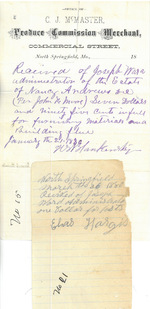 OFFICE OF
C. J. McMASTER,
Produce Commission Merchant,
COMMERCIAL STREET,
North Springfield, Mo., 18
Received of Joseph Ward
administrator of the Estate
of Nancy Andrews
(Per John McMinn) Seven Dollars
and Ninety five Cents in full
for furnishing material and
Building fence
January
No 10
North Springfield
March the
Received of Joseph
Ward Administrator
one Dollar for
No 21